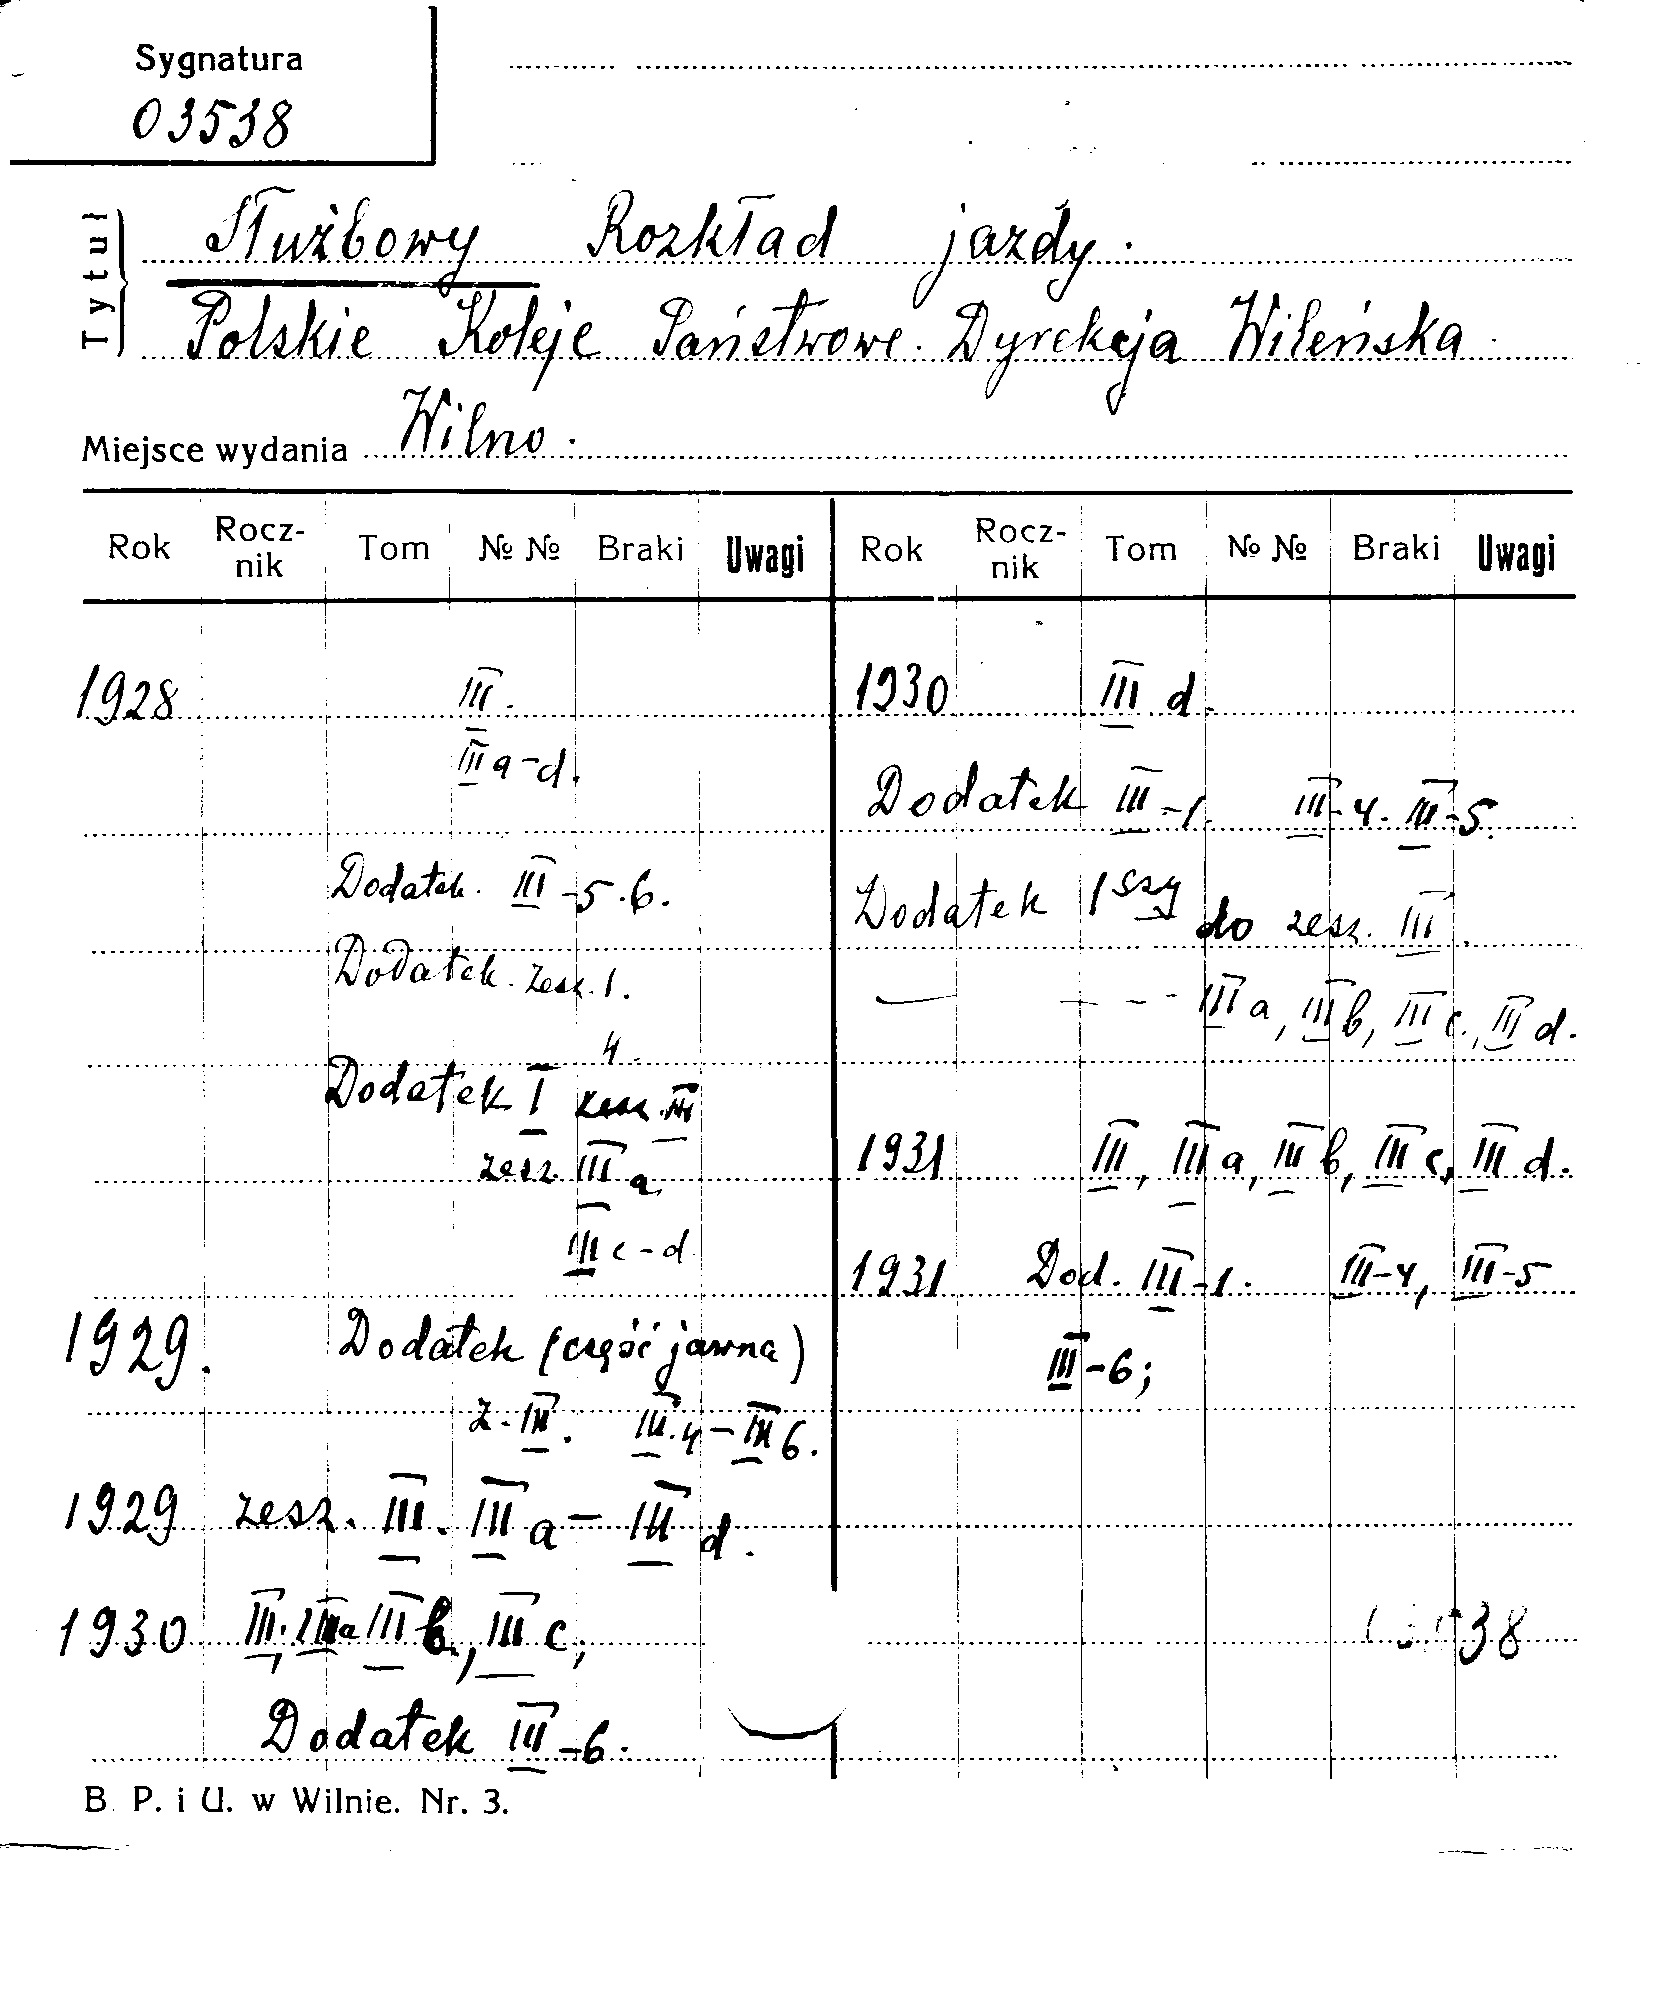 Sygnatura
03538
Tytuł
Służbowy Rozkład jazdy.
Polskie Koleje Państwowe. Dyrekcja Wileńska.
Miejsce wydania Wilno.
Rok Rocz-nik Tom № № Braki Uwagi Rok Rocz-nik Tom № № Braki Uwagi
1928 III.
III a-d.
Dodatek. III-5.6.
Dodatek. zesz. 1.
4.
Dodatek I zesz. III
zesz. III a
III c-d
1929. Dodatek (część jawna)
z. III. III.4-III 6.
1929 zesz. III. III a- III d.
1930 III, III a III b, III c,
Dodatek III-6.
1930 III d.
Dodatek III-1. III-4. III-5.
Dodatek 1szy do zesz. III.
— — - - III a, III b, III c., III d.
1931 III, III a, III b, III c, III d.
1931 Dod. III-1. III-4, III-5
III-6;
38
B. P. i U. w Wilnie. Nr. 3.